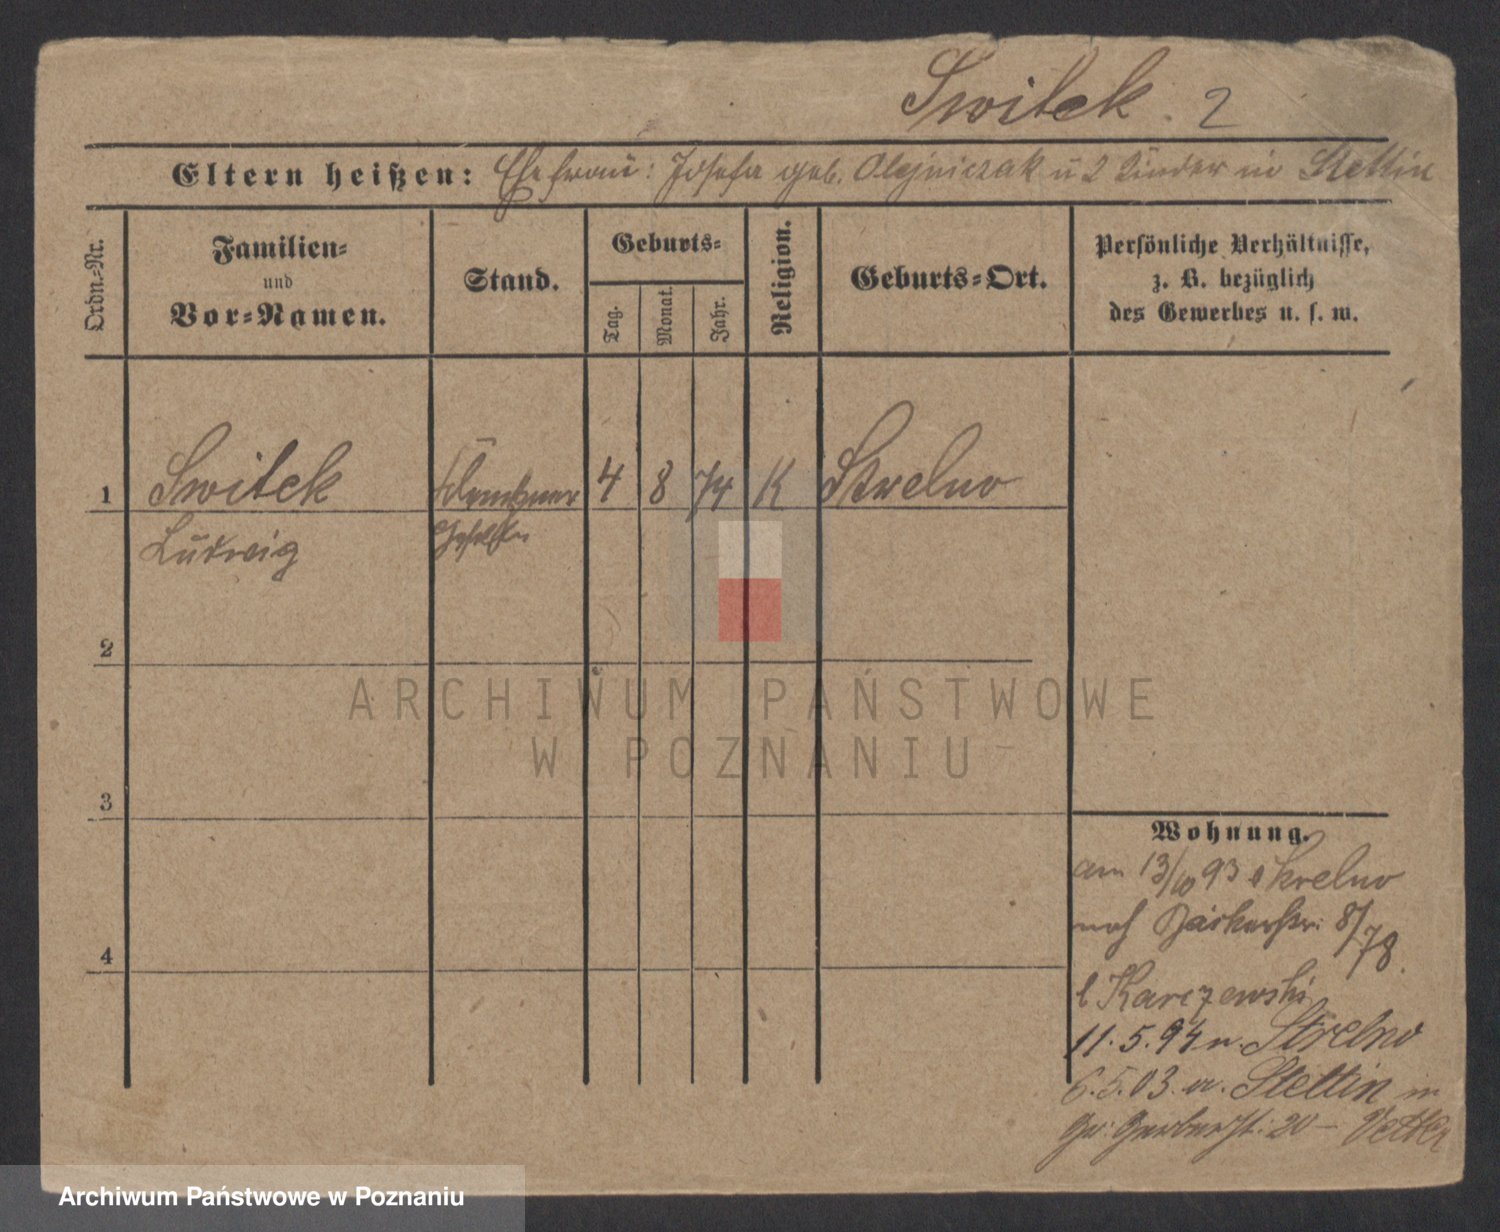 Switek. 2
Eltern heißen: Ehefrau: Josefa geb. Olejniczak u 2 Kinder in Stettin
Ordn.-Nr.
Familien-
und
Vor-Namen.
Stand.
Geburts-
Tag.
Monat.
Jahr.
Religion.
Geburts-Ort.
Persönliche Verhältnisse,
z. B. bezüglich
des Gewerbes u. s. w.
1 Switek Klempner 4 8 74 K Strelno
Ludwig Geselle
2
ARCHIWUM PAŃSTWOWE
W POZNANIU
3
Wohnung.
am 13/10 93 Strelno
nach Bäckerstr. 8/78.
b Karczewski
11.5.94 n. Strelno
6.5.03. a. Stettin in
Gr. Gerberst. 20 –
4
Archiwum Państwowe w Poznaniu